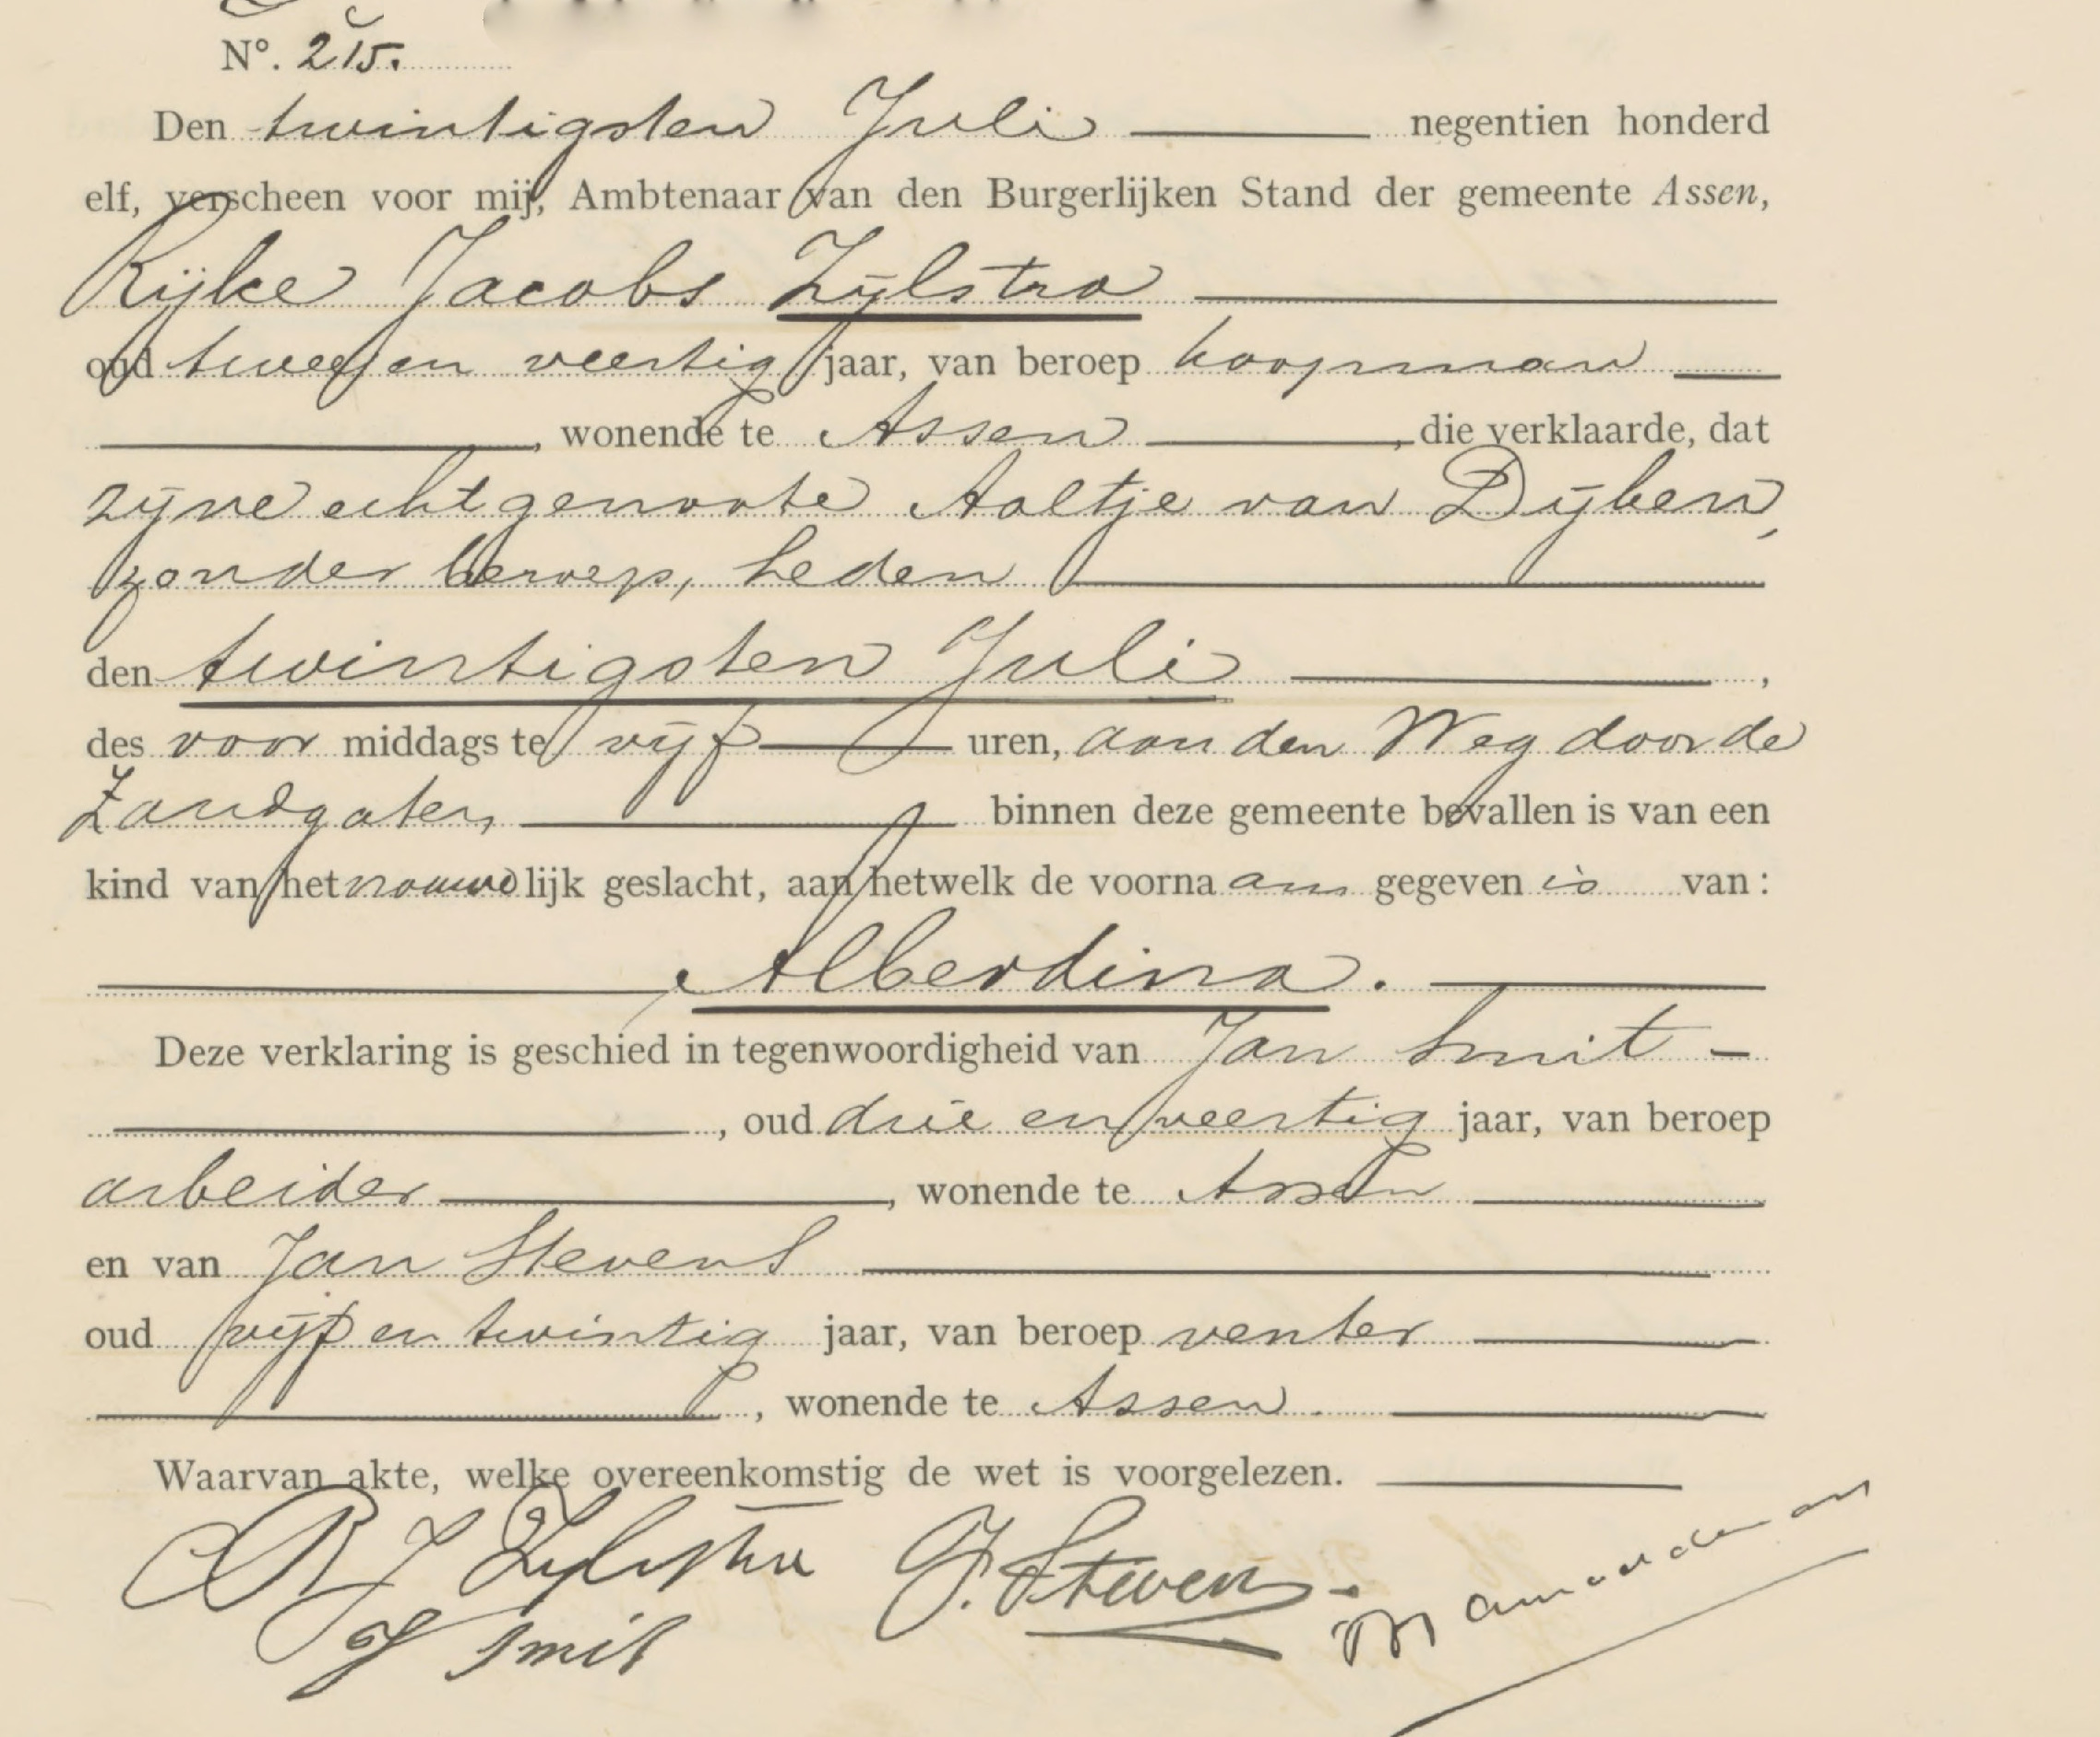 Nº. 215.
Den twintigsten Juli negentien honderd
elf, verscheen voor mij, Ambtenaar van den Burgerlijken Stand der gemeente Assen,
Rijke Jacobs Zijlstra
oud twee en veertig jaar, van beroep koopman
, wonende te Assen, die verklaarde, dat
zijne echtgenoote Aaltje van Dijken,
zonder beroep, heden
den twintigsten Juli,
des voor middags te vijf uren, aan den Weg door de
Zandgaten, binnen deze gemeente bevallen is van een
kind van het vrouwelijk geslacht, aan hetwelk de voornaam gegeven is van:
Alberdina.
Deze verklaring is geschied in tegenwoordigheid van Jan Smit
, oud drie en veertig jaar, van beroep
arbeider, wonende te Assen
en van Jan Stevens
oud vijf en twintig jaar, van beroep venter
, wonende te Assen.
Waarvan akte, welke overeenkomstig de wet is voorgelezen.
R J Zylstra J. Stevens.
J Smit